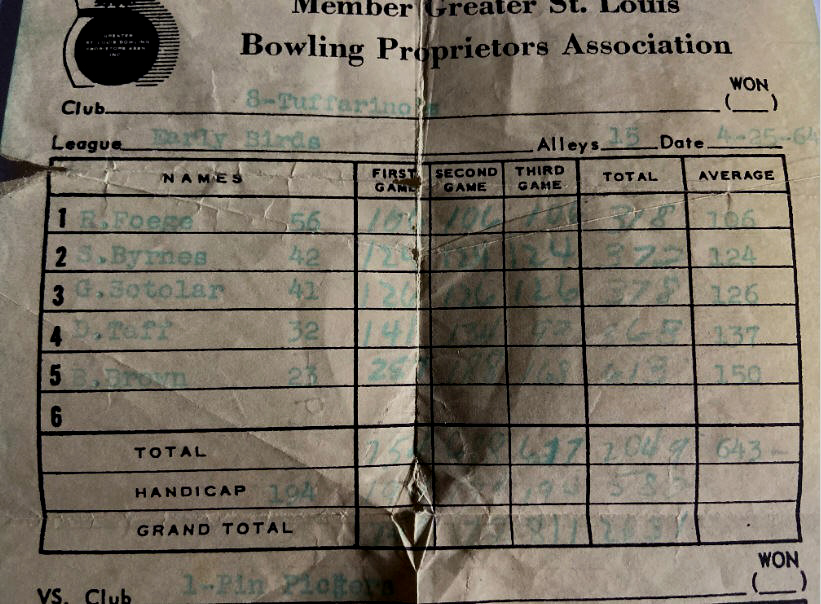 GREATER
ST. LOUIS BOWLING
PROPRIETORS ASSN.
INC.
Member Greater St. Louis
Bowling Proprietors Association
WON
Club 8-Tuffarino's (__)
League Early Birds Alleys 15 Date 4-25-64
NAMES FIRST GAME SECOND GAME THIRD GAME TOTAL AVERAGE
1 R.Foege 56 106 106 318 106
2 S.Byrnes 42 124 124 372 124
3 G.Sotolar 41 126 126 126 378 126
4 D.Taff 32 141 134 137
5 B.Brown 23 168 613 150
6
TOTAL 617 2049 643-
HANDICAP 194 194 194 582
GRAND TOTAL 811 2631
WON
VS. Club 1-Pin Pickers (__)